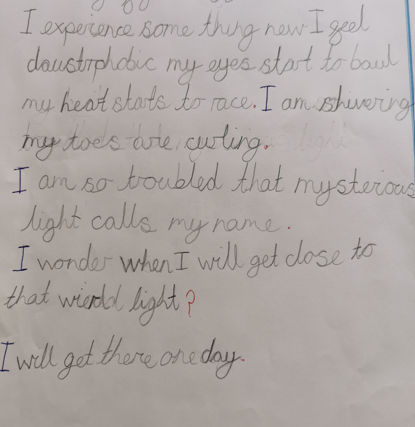 I experience some thing new I geel
claustrphobic my eyes start to baul
my heat starts to race. I am shivering
my toes are curling.
I am so troubled that mysterious
light calls my name.
I wonder when I will get close to
that wierdd light?
I will get there one day.